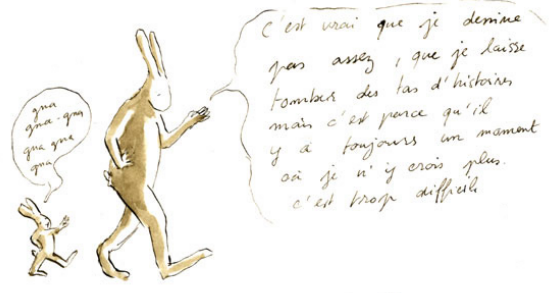 gna
gna-gna
gna gna
gna
C'est vrai que je dessine
pas assez, que je laisse
tomber des tas d'histoires
mais c'est parce qu'il
y a toujours un moment
où je n'y crois plus.
c'est trop difficile